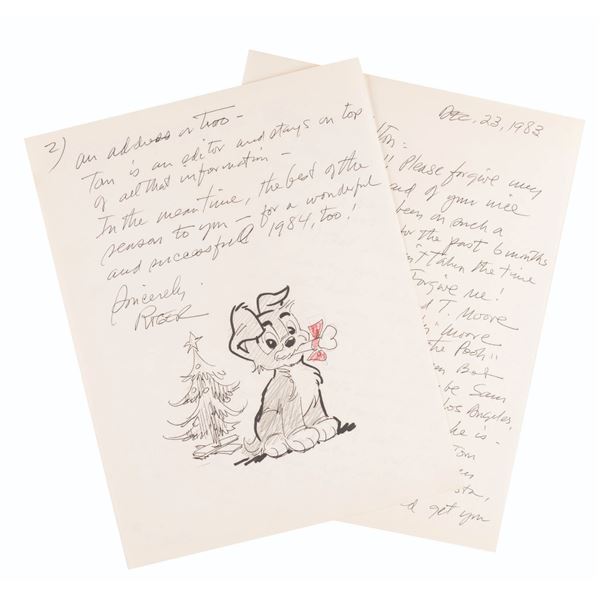 2) an address or two -
Tom is an editor and stays on top
of all that information -
In the meantime, the best of the
season to you - for a wonderful
and successful 1984, too!
Sincerely,
ROGER
DEC. 23, 1983
!! Please forgive my
of your nice
been on such a
for the past 6 months
n't taken the time
Forgive me!
d T. Moore
Moore
the Pooh"
m Bas
be Sam
Los Angeles,
he is -
Tom
sta,
d get you